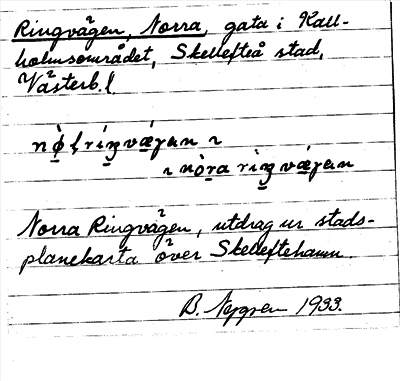 Ringvägen, Norra, gata i Kall-
holmsområdet, Skellefteå stad,
Västerb. l.
nø̀ɽríŋvǽgan ~
~ nòra ríŋvǽgan
Norra Ringvägen, utdrag ur stads-
planekarta över Skelleftehamn.
B. Nygren 1933.